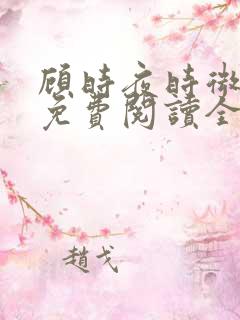 顧時夜時微
免費閱讀全
趙戈